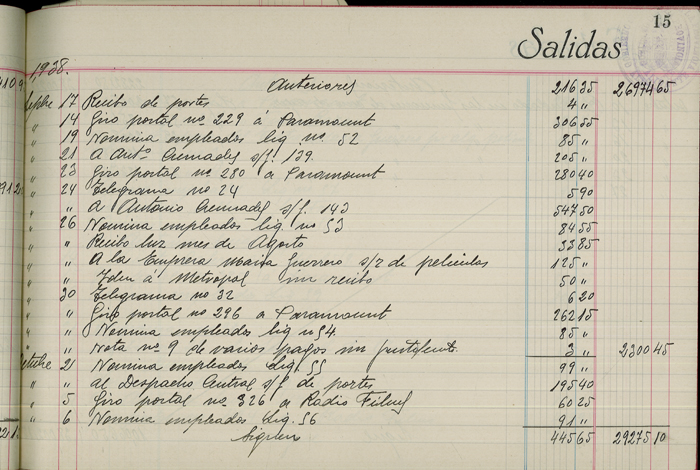 15
Salidas
1938.
Anteriores 21635 2697465
Sepbre 17 Recibo de portes 4 "
" 14 Giro portal nº 229 á Paramount 30655
" 19 Nomina empleados liq. nº 52 85 "
" 21 A Antº Cremades s/f. 139. 205 "
" 23 Giro portal nº 280 a Paramount 28040
" 24 Telegrama nº 24 590
" " a Antonio Cremades s/f. 143 54750
" 26 Nomina empleados liq. nº 53 8455
" " Recibo luz mes de Agosto 3385
" " A la Empresa Maria Guerrero s/r de peliculas 125 "
" " Idem á Metropol sin recibo 50 "
" 30 Telegrama nº 32 620
" " Giro portal nº 296 a Paramount 26215
" " Nomina empleados liq nº 54. 85 "
" " Nota nº 9 de varios pagos sin justificante 3 " 230045
Octubre 2 Nomina empleados liq. 55 99 "
" " al Despacho Central s/f de portes 19540
" 5 Giro portal nº 326 a Radio Films 6025
" 6 Nomina empleados liq. 56 91 "
Siguen 44565 2927510